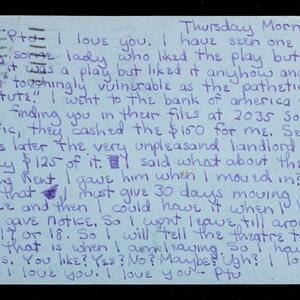 Thursday Morn
Ptu I love you. I have seen one
some lady who liked the play but
it was a play but liked it anyhow an
touchingly vulnerable as the pathetic
tute!! I went to the bank of america
finding you in their files at 2035 So
ic, they cashed the $150 for me. Se
s later the very unpleasand landlord
y $125 of it. I said what about th
ng Rent I gave him when I moved in?
that I must give 30 days moving
ce and then I could have it when I
gave notice. So I wont leave till aro
17 or 18. So I will tell the theatre t
that is when I am leaving. So ha
s. You like? Yes? No? Maybe? Ugh? I lo
e I love you. I love you - Ptu